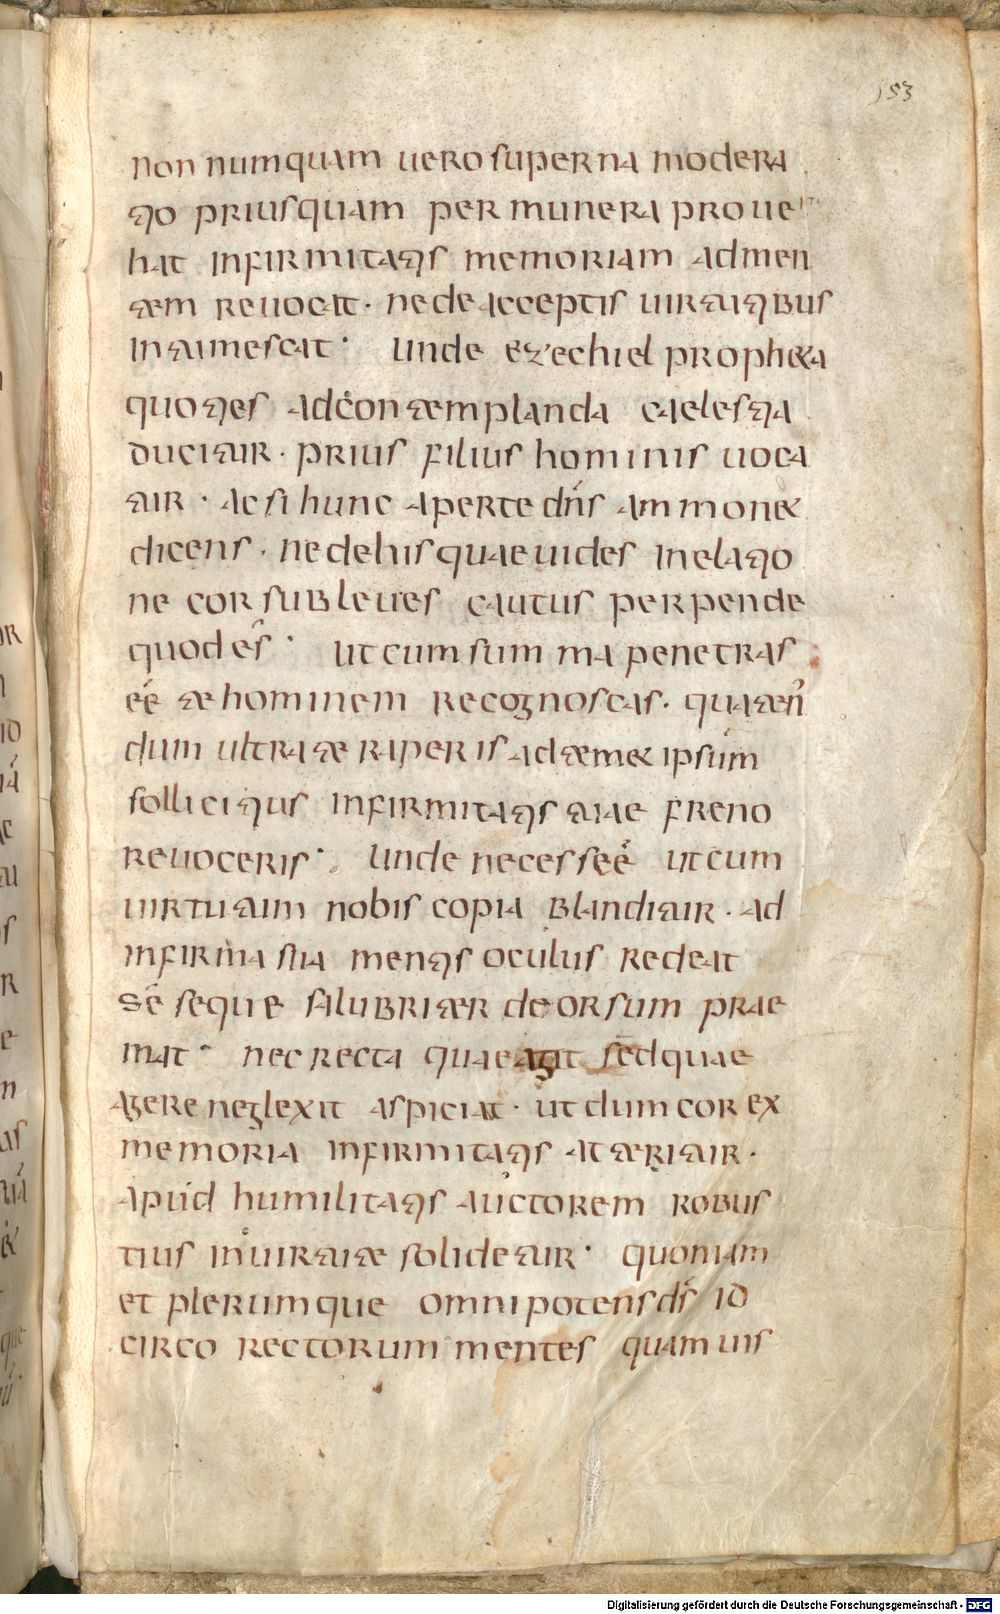 153
non numquam uero superna modera
tio priusquam per munera proue
hat infirmitatis memoriam ad men
tem reuocat · ne de acceptis uirtutibus
intumescat · Unde ezechiel propheta
quoties ad contemplanda caelestia
ducitur · prius filius hominis uoca
tur · ac si hunc aperte dn̄s ammonet
dicens · ne de his quae uides in elatio
ne cor subleues cautus perpende
quod es̄ · ut cum summa penetras
eē te hominem recognoscas · quaten̄
dum ultra te raperis ad temet ipsum
sollicitus infirmitatis tuae freno
reuoceris · Unde necesse ē ut cum
uirtutum nobis copia blanditur · ad
infirma sua mentis oculus redeat
sē seque salubriter deorsum prae
mat · nec recta quae agit sed quae
agere neglexit aspiciat · ut dum cor ex
memoria infirmitatis atteritur ·
apud humilitatis auctorem robus
tius in uirtute solidetur · quoniam
et plerumque omnipotens ds̄ id
circo rectorum mentes quamuis
Digitalisierung gefördert durch die Deutsche Forschungsgemeinschaft - DFG